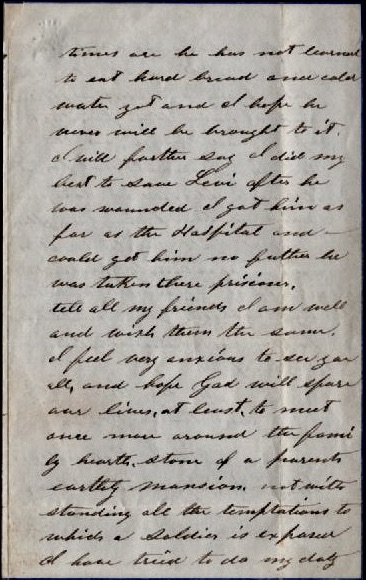 times are he has not learned
to eat hard bread and cold
water yet and I hope he
never will be brought to it.
I will further say I did my
best to save Levi after he
was wounded I got him as
far as the Hospital and
could get him no futher he
was taken there prisioner.
tell all my friends I am well
and wish them the same.
I feel very anxious to see you
all, and hope God will spare
our lives, at least, to meet
once more around the fami
ly hearth, stone of a parents
earthly mansion, not with
standing all the temptations to
which a Soldier is exposed
I have tried to do my duty